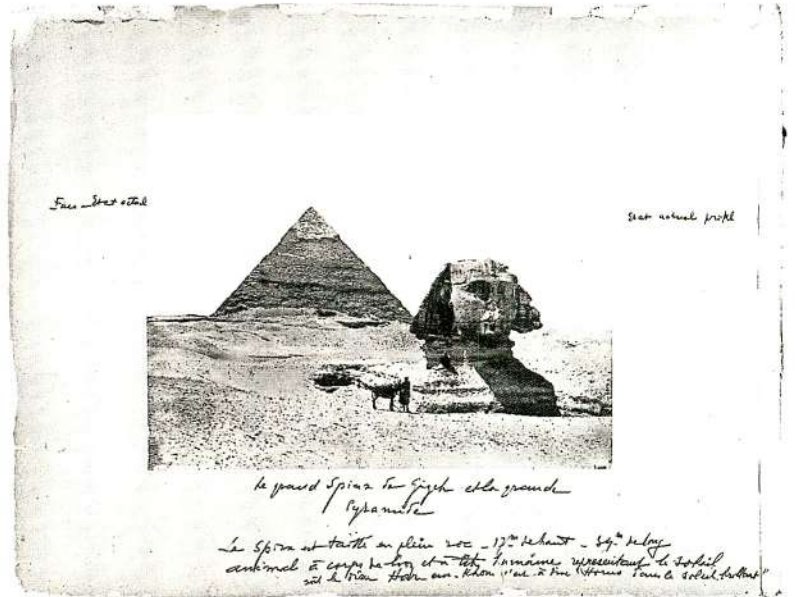 Face - Etat actuel
Etat actuel profil
Le grand Spinx de Gizeh et la grande
Pyramide
Le Spinx est taillé en plein roc - 17m de haut - 39m de long
animal à corps de lion et à tête humaine représentant le soleil
soit le dieu Har em-Khou c'est à dire "Horus dans le soleil brillant"